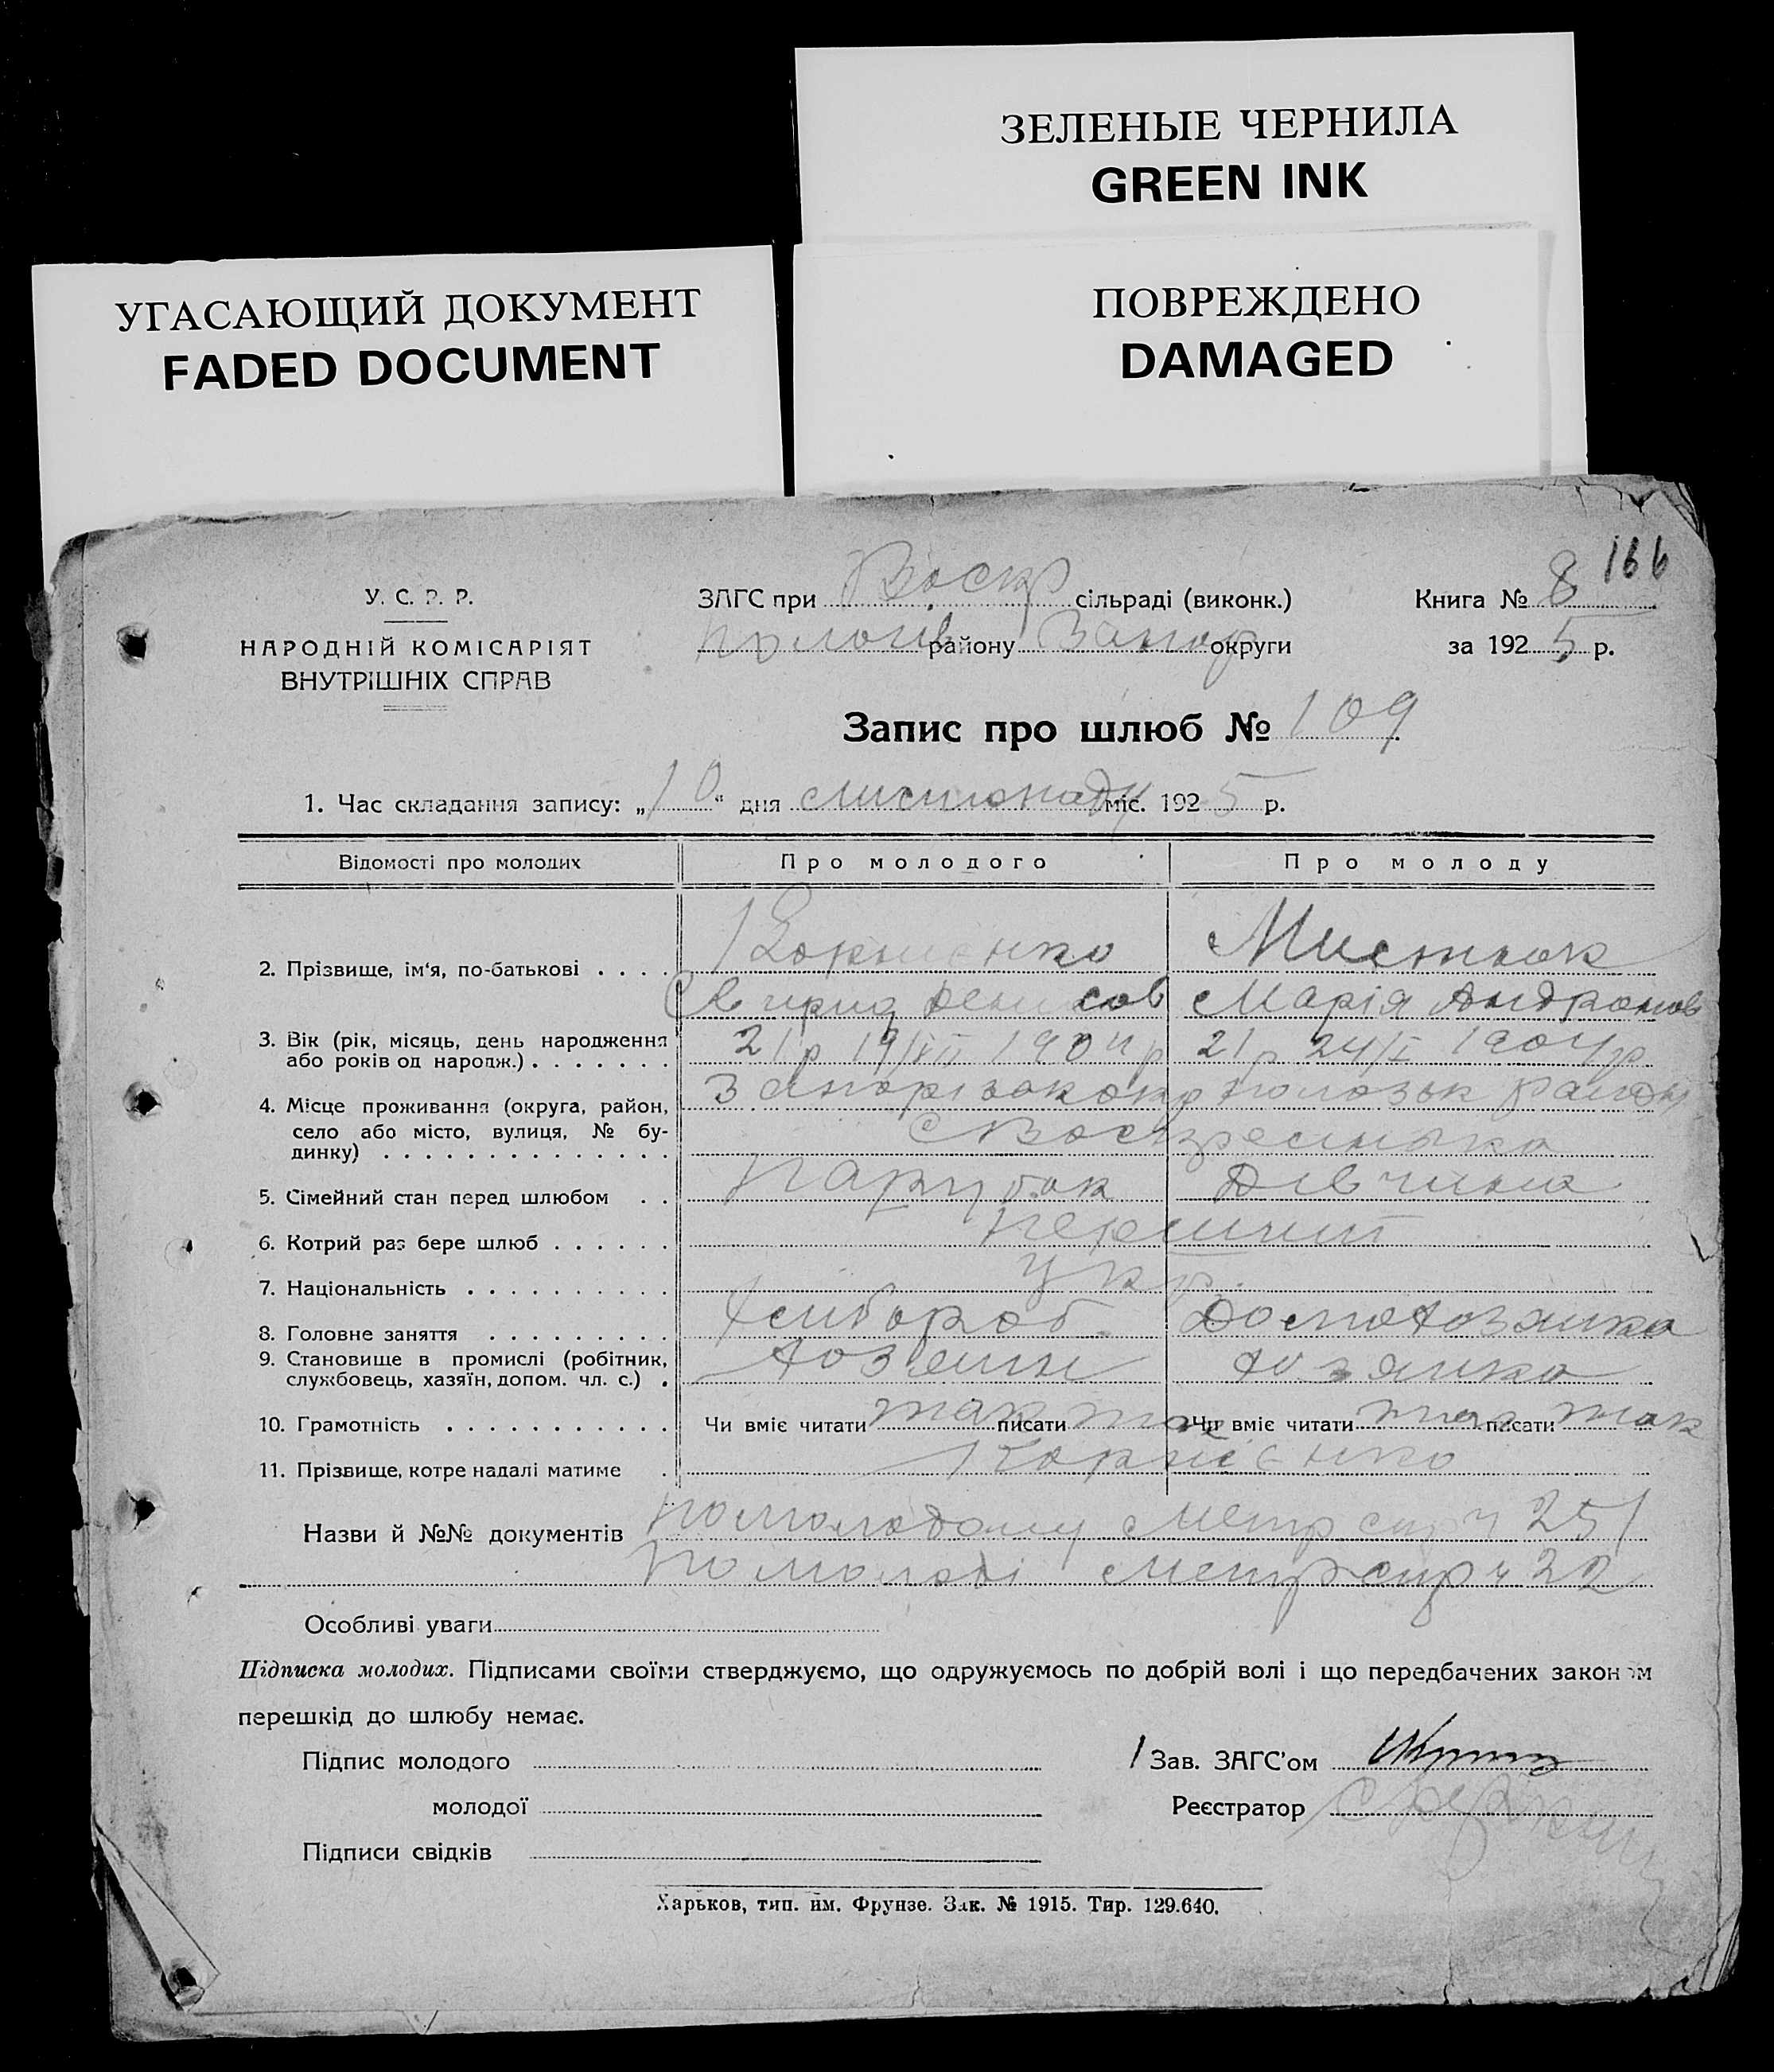 ЗЕЛЕНЫЕ ЧЕРНИЛА
GREEN INK
УГАСАЮЩИЙ ДОКУМЕНТ
FADED DOCUMENT
ПОВРЕЖДЕНО
DAMAGED
166
У. С. Р. Р.
НАРОДНІЙ КОМІСАРІЯТ
ВНУТРІШНІХ СПРАВ
ЗАГС при Воскр сільраді (виконк.)
Пологів району Запор округи
Книга № 8
за 1925 р.
Запис про шлюб № 109
1. Час складання запису: „10" дня листопаду міс. 1925 р.
Відомості про молодих Про молодого Про молоду
2. Прізвище, ім'я, по-батькові . . . . Корниенко Мистюк
Свирид Денисов Марія Андронов
3. Вік (рік, місяць, день народження 21 р 19/VII 1904 р 21 р 24/I 1904 р
або років од народж.) . . . . . . .
4. Місце проживання (округа, район, Запорізьк окр Пологзьк району
село або місто, вулиця, № бу- с Воскресенька
динку) . . . . . . . . . . . . . .
5. Сімейний стан перед шлюбом . . Парубок Дівчина
6. Котрий раз бере шлюб . . . . . . перший
7. Національність . . . . . . . . . . укр.
8. Головне заняття . . . . . . . . . Хлібороб. Домохозяйка
9. Становище в промислі (робітник, хозяин хозяйка
службовець, хазяїн, допом. чл. с.) .
10. Грамотність . . . . . . . . . . . Чи вміє читати так писати так Чи вміє читати так писати так
11. Прізвище, котре надалі матиме . Корнієнко
Назви й №№ документів по молодому метр спр ч 251
по молоді метр спр ч 22
Особливі уваги
Підписка молодих. Підписами своїми стверджуємо, що одружуємось по добрій волі і що передбачених законом
перешкід до шлюбу немає.
Підпис молодого
Зав. ЗАГС'ом
молодої
Реєстратор
Підписи свідків
Харьков, тип. им. Фрунзе. Зак. № 1915. Тир. 129.640.